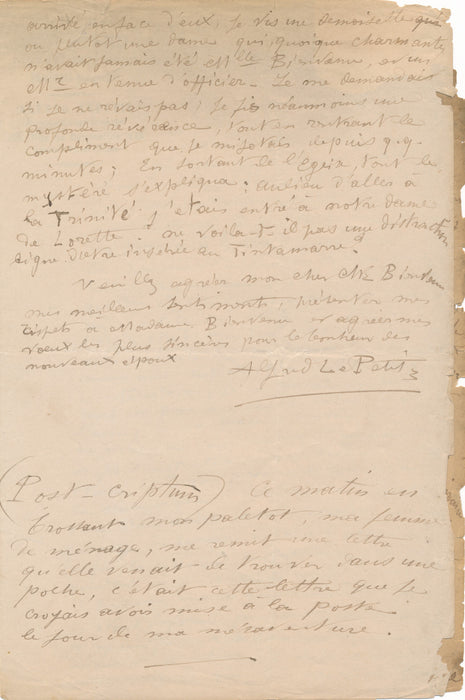 arrivé en face d'eux, je vis une demoiselle
ou plutôt une dame qui, quoique charmante
n'avait jamais été Melle Bienvenu, et un
Mr en tenue d'officier. Je me demandais
si je ne rêvais pas, je fis néanmoins une
profonde révérence, tout en rentrant le
compliment que je mijotais depuis q.q.
minutes; En sortant de l'Eglise, tout le
mystère s'expliqua; aulieu d'aller à
la Trinité j'étais entré à notre dame
de Lorette: ne voila-t-il pas une distraction
digne d'etre insérée au Tintamarre.
Veuillez agréer mon cher Mr Bienvenu
mes meilleurs sentiments, présenter mes
respets a Madame Bienvenu et agréez mes
voeux les plus sincères pour le bonheur des
nouveaux époux
Alfred Le Petit
(Post-criptum) Ce matin en
brossant mon paletot, ma femme
de ménage, me remit une lettre
qu'elle venait de trouver dans une
poche, c'était cette lettre que je
croyais avois mise à la poste
le jour de ma mésaventure.